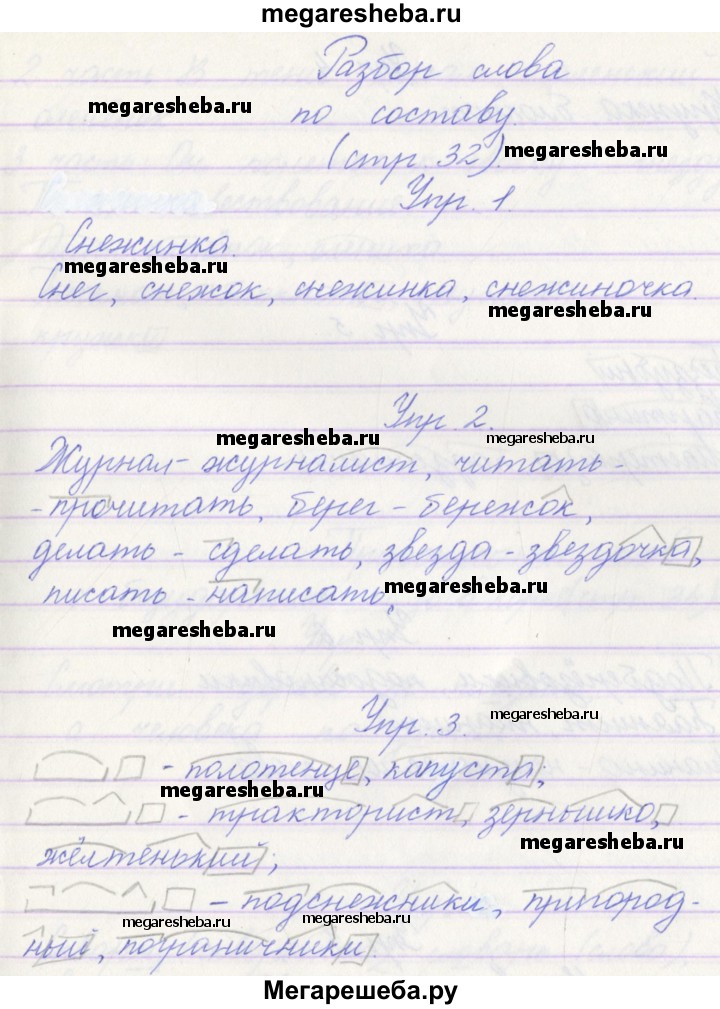 megaresheba.ru
Разбор слова
megaresheba.ru
по составу.
(стр. 32).
megaresheba.ru
Упр. 1.
Снежинка.
megaresheba.ru
Снег, снежок, снежинка, снежиночка.
megaresheba.ru
Упр. 2.
megaresheba.ru
Журнал - журналист, читать -
- прочитать, берег - бережок,
делать - сделать, звезда - звездочка,
писать - написать.
megaresheba.ru
megaresheba.ru
Упр. 3.
megaresheba.ru
- полотенце, капуста;
megaresheba.ru
- тракторист, зернышко,
megaresheba.ru
жёлтенький;
- подснежники, пригород-
megaresheba.ru
megaresheba.ru
ный, пограничники.
Мегарешеба.ру